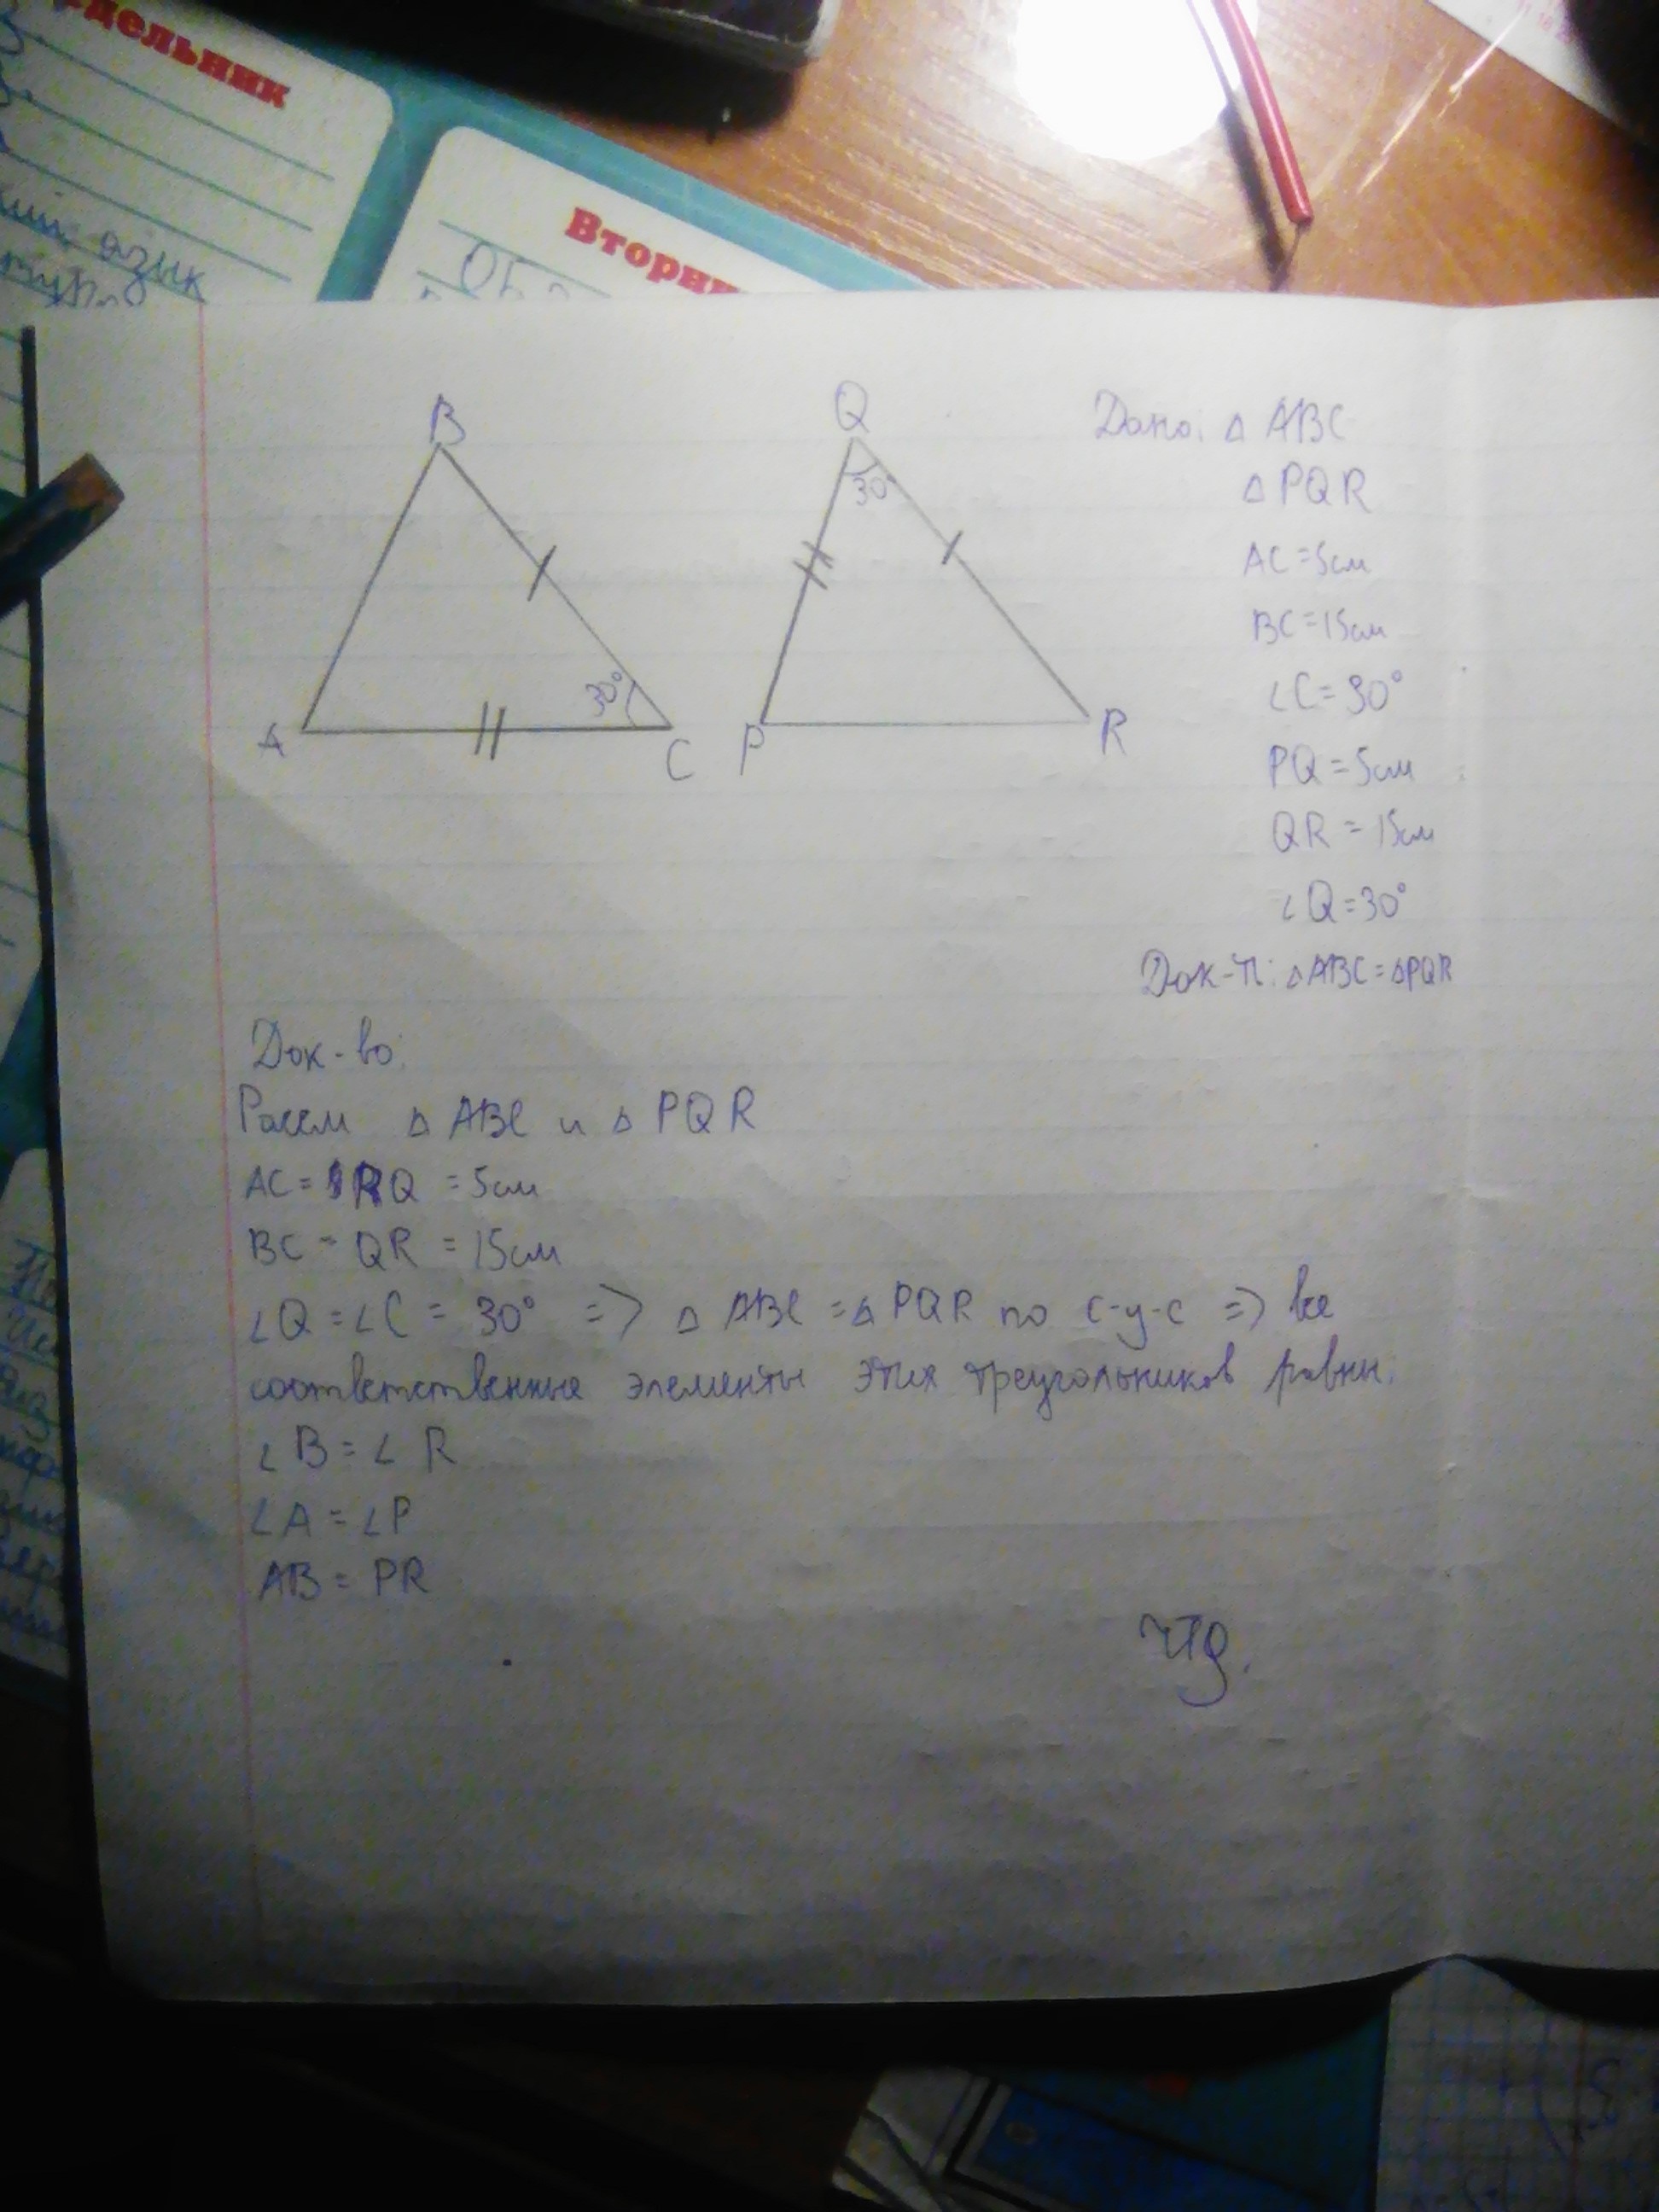 дельник
язик
Вторни
B
A
C
30°
Q
30°
P
R
Дано: △ ABC
△ PQR
AC = 5см
BC = 15см
∠C = 30°
PQ = 5см
QR = 15см
∠Q = 30°
Док-ть: △ABC = △PQR
Док-во:
Рассм △ ABC и △ PQR
AC = PQ = 5см
BC = QR = 15см
∠Q = ∠C = 30° => △ ABC = △ PQR по с-у-с => все
соответственные элементы этих треугольников равны.
∠B = ∠R
∠A = ∠P
AB = PR
чтд.